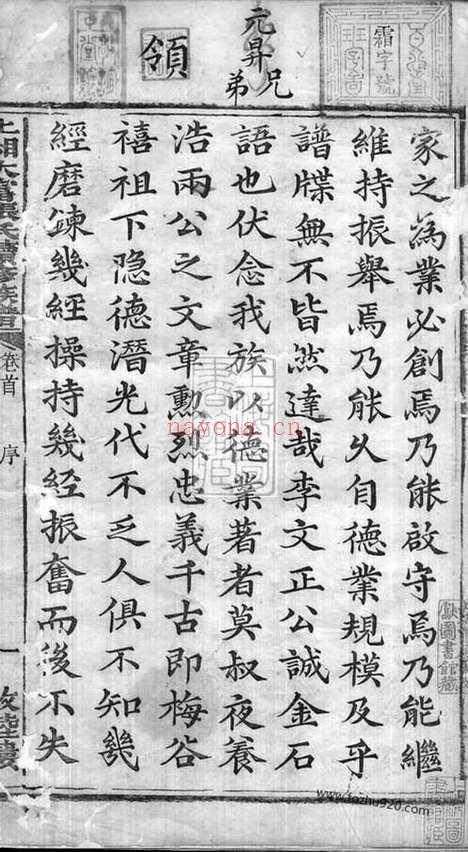 元昇兄弟
領
霜字號
家之為業必創焉乃能啟守焉乃能繼
維持振舉焉乃能久自德業規模及乎
譜牒無不皆然達哉李文正公誠金石
語也伏念我族以德業著者莫叔夜養
浩兩公之文章勳烈忠義千古即梅谷
禧祖下隐德潛光代不乏人俱不知幾
經磨鍊幾經操持幾經振奮而後不失
卷首 序
一
敦睦樓
圖書館藏
nayona.cn
www.fozhu920.com